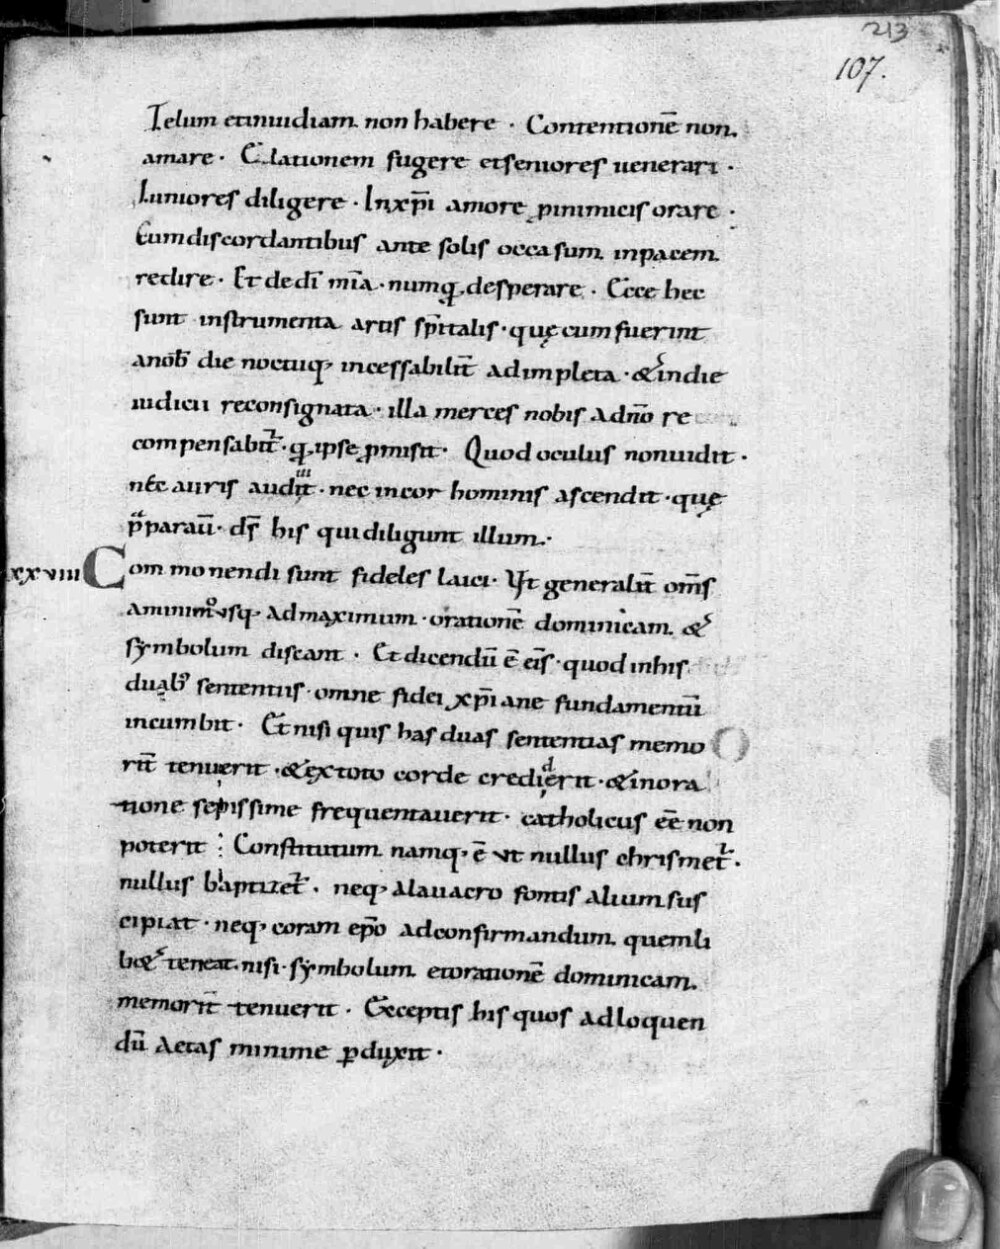 213
107.
Ielum etinuidiam non habere · Contentionē non
amare · Elationem fugere etseniores uenerari ·
Iuniores diligere · Inxp̄i amore pinimicis orare ·
Cumdiscordantibus ante solis occasum inpacem
redire · Et dedī mīa · numq̄ desperare · Ecce hec
sunt instrumenta artis sp̄italis · quę cum fuerint
anōb die noctuq; incessabilit̄ adimpleta · &indie
iudicii reconsignata · illa merces nobis adn̄o re
compensabit̄ · q̄ ipse promisit · Quod oculus nonuidit ·
nec auris audiit · nec incor hominis ascendit · quę
p̄paraū · d̄s his quidiligunt illum ·
xxviii Commonendi sunt fideles laici · Ut generalit̄ om̄s
aminimo usq; admaximum · orationē dominicam &
symbolum discant · Et dicendū ē eis̄ · quod inhis
duab; sententiis · omne fidei xp̄iane fundamentū
incumbit · Et nisi quis has duas sententias memo
rit̄ tenuerit · &extoto corde crediderit · &inora
tione sepissime frequentauerit · catholicus eē non
poterit : Constitutum namq; ē ut nullus chrismet̄ ·
nullus baptizet̄ · neq; alauacro fontis alium sus
cipiat · neq; coram ep̄o adconfirmandum quemli
b& teneat nisi · symbolum etorationē dominicam
memorit̄ tenuerit · Exceptis his quos adloquen
dū aetas minime pduxit ·